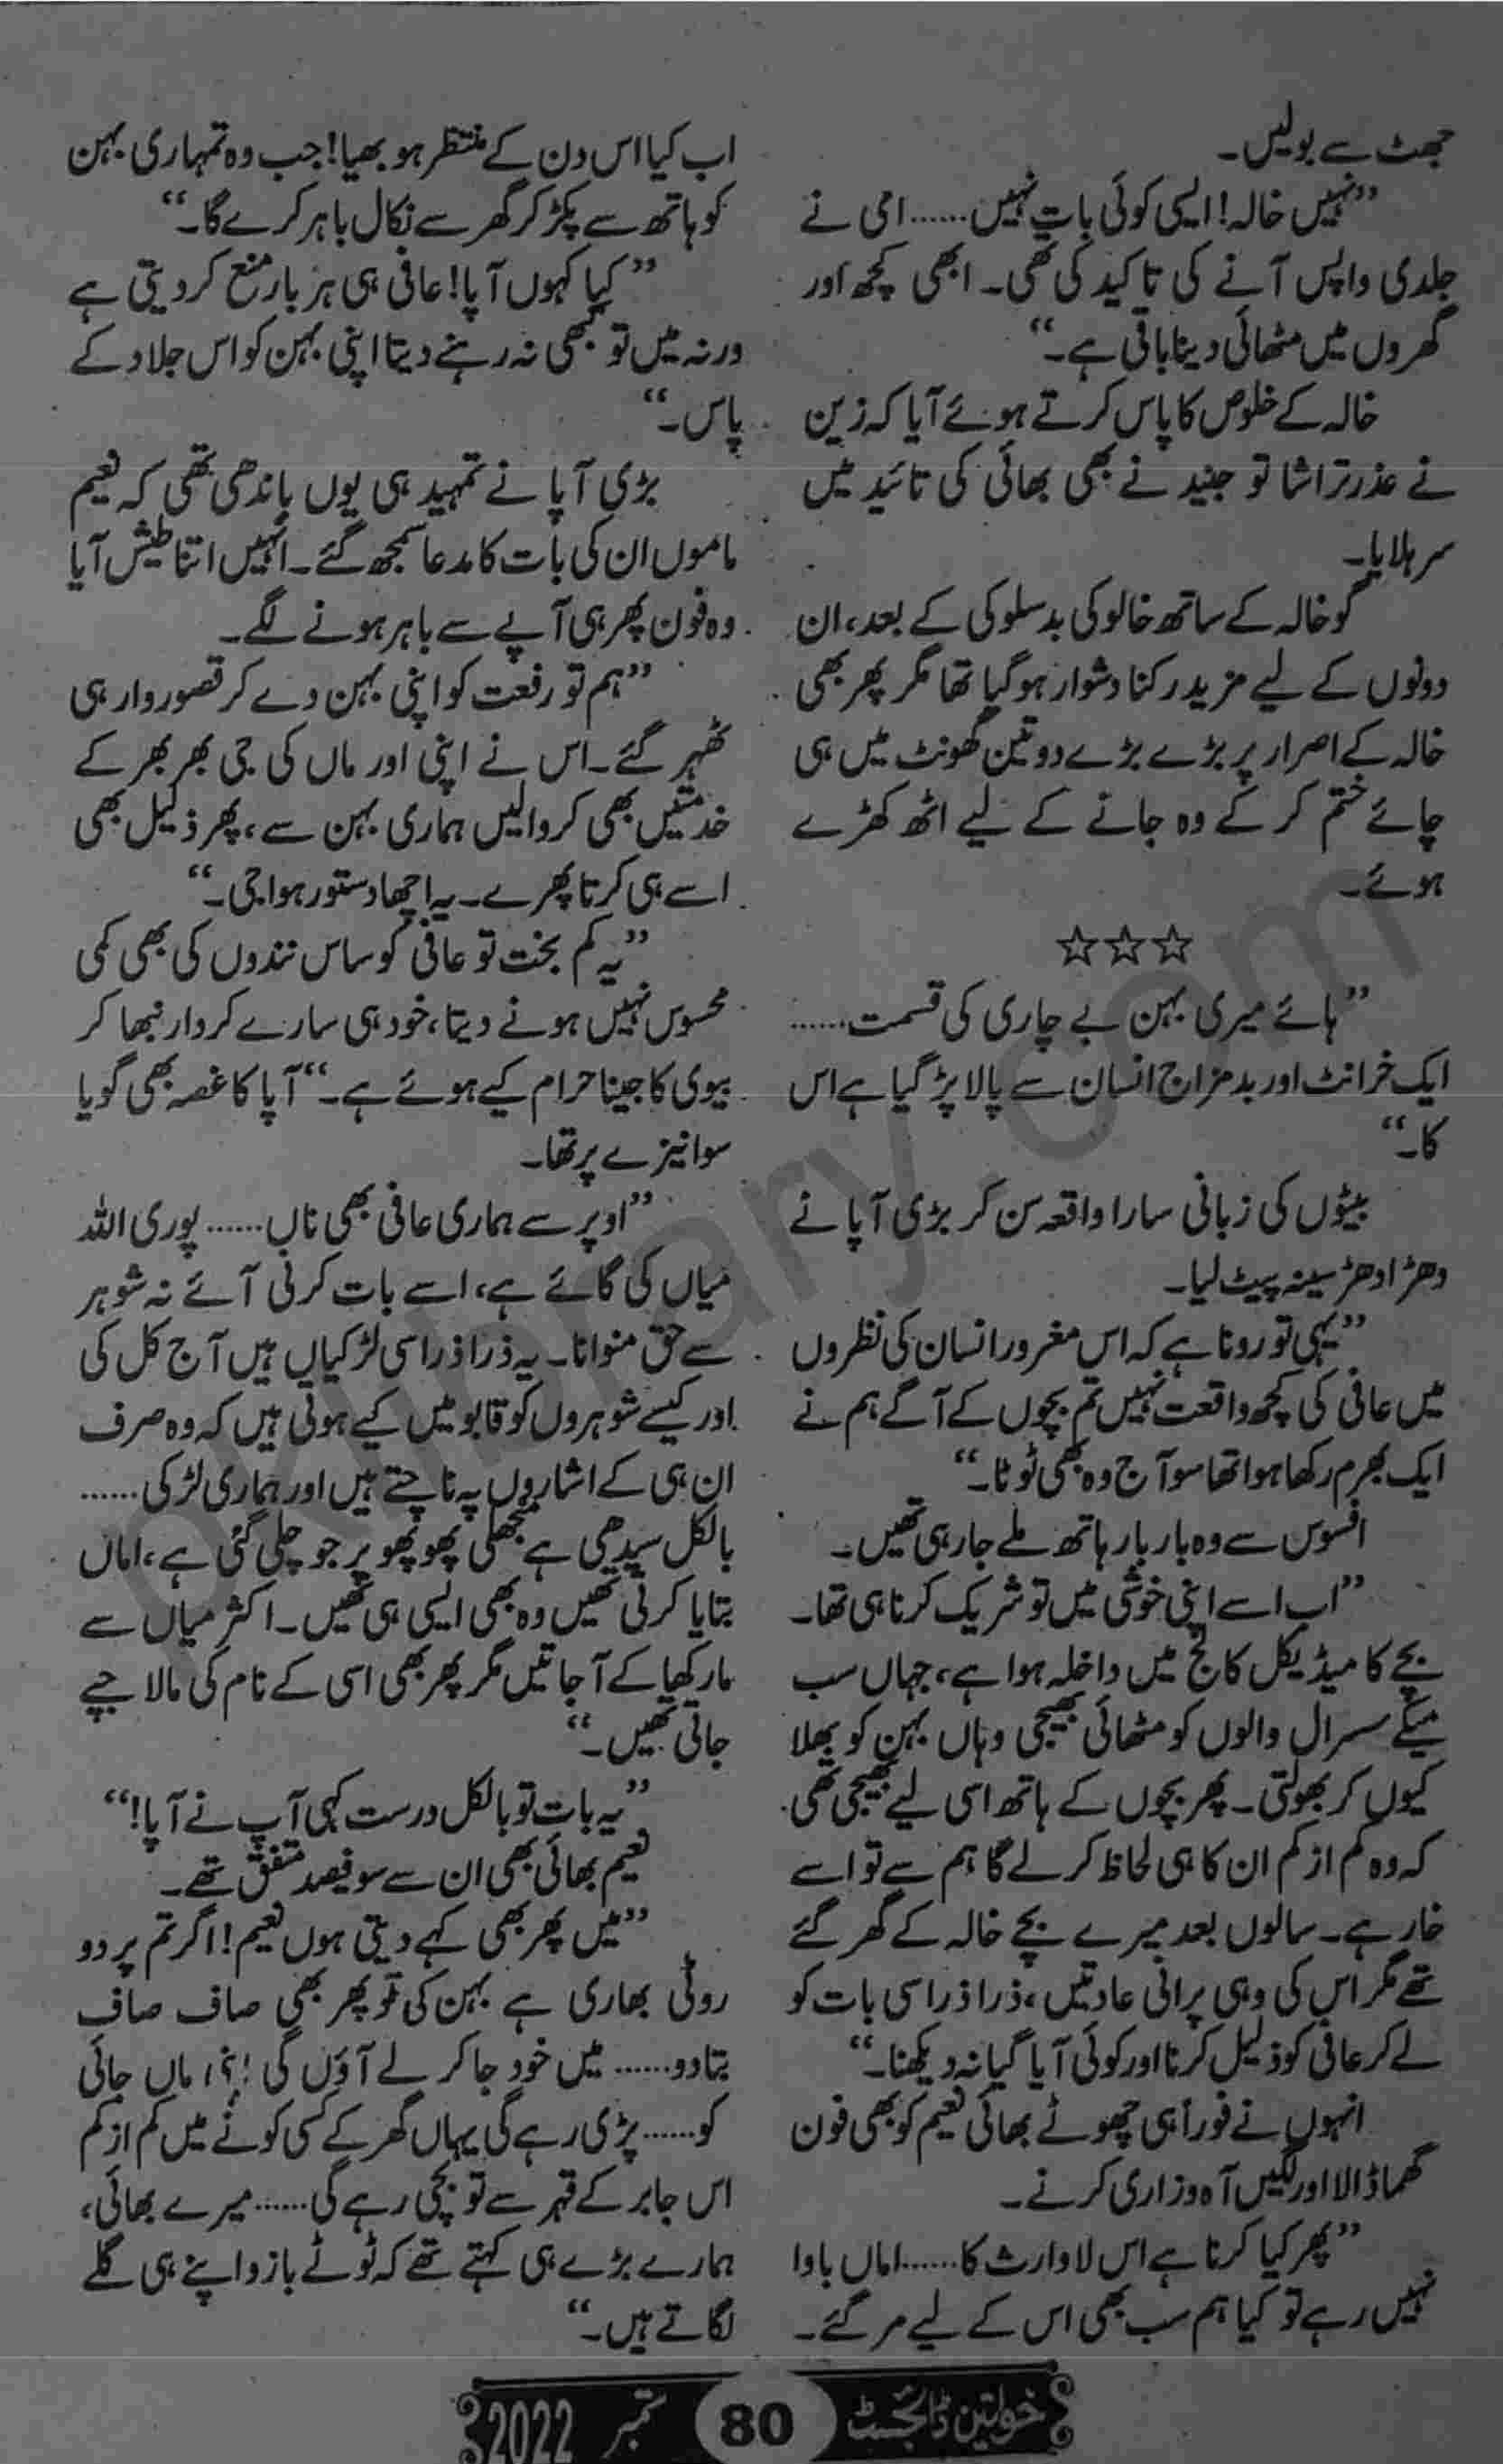 جھٹ سے بولیں۔
”نہیں خالہ! ایسی کوئی بات نہیں...... امی نے
جلدی واپس آنے کی تاکید کی تھی۔ ابھی کچھ اور
گھروں میں مٹھائی دینا باقی ہے۔“
خالہ کے خلوص کا پاس کرتے ہوئے آیا کہ زین
نے عذر تراشا تو جنید نے بھی بھائی کی تائید میں
سر ہلایا۔
گو خالہ کے ساتھ خالو کی بدسلوکی کے بعد، ان
دونوں کے لیے مزید رکنا دشوار ہو گیا تھا مگر پھر بھی
خالہ کے اصرار پر بڑے بڑے دو تین گھونٹ میں ہی
چائے ختم کر کے وہ جانے کے لیے اٹھ کھڑے
ہوئے۔
☆☆☆
”ہائے میری بہن بے چاری کی قسمت......
ایک خرانٹ اور بدمزاج انسان سے پالا پڑ گیا ہے اس
کا۔“
بیٹوں کی زبانی سارا واقعہ سن کر بڑی آپا نے
دھڑا دھڑ سینہ پیٹ لیا۔
”یہی تو رونا ہے کہ اس مغرور انسان کی نظروں
میں عافی کی کچھ واقعت نہیں تم بچوں کے آگے ہم نے
ایک بھرم رکھا ہوا تھا سو آج وہ بھی ٹوٹا۔“
افسوس سے وہ بار بار ہاتھ ملے جا رہی تھیں۔
”اب اسے اپنی خوشی میں تو شریک کرنا ہی تھا۔
بچے کا میڈیکل کالج میں داخلہ ہوا ہے، جہاں سب
میکے سسرال والوں کو مٹھائی بھیجی وہاں بہن کو بھلا
کیوں کر بھولتی۔ پھر بچوں کے ہاتھ اسی لیے بھیجی تھی
کہ وہ کم از کم ان کا ہی لحاظ کر لے گا ہم سے تو اسے
خار ہے۔ سالوں بعد میرے بچے خالہ کے گھر گئے
تھے مگر اس کی وہی پرانی عادتیں، ذرا ذرا سی بات کو
لے کر عافی کو ذلیل کرنا اور کوئی آیا گیا نہ دیکھنا۔“
انہوں نے فوراً ہی چھوٹے بھائی نعیم کو بھی فون
گھما ڈالا اور لگیں آہ وزاری کرنے۔
”پھر کیا کرنا ہے اس لاوارث کا...... اماں باوا
نہیں رہے تو کیا ہم سب بھی اس کے لیے مر گئے۔
اب کیا اس دن کے منتظر ہو بھیا! جب وہ تمہاری بہن
کو ہاتھ سے پکڑ کر گھر سے نکال باہر کرے گا۔“
”کیا کہوں آپا! عافی ہی ہر بار منع کر دیتی ہے
ورنہ میں تو کبھی نہ رہنے دیتا اپنی بہن کو اس جلاد کے
پاس۔“
بڑی آپا نے تمہید ہی یوں باندھی تھی کہ نعیم
ماموں ان کی بات کا مدعا سمجھ گئے۔ انہیں اتنا طیش آیا
وہ فون پھر ہی آپے سے باہر ہونے لگے۔
”ہم تو رفعت کو اپنی بہن دے کر قصوروار ہی
ٹھہر گئے۔ اس نے اپنی اور ماں کی جی بھر بھر کے
خدمتیں بھی کروالیں ہماری بہن سے، پھر ذلیل بھی
اسے ہی کرتا پھرے۔ یہ اچھا دستور ہوا جی۔“
”یہ کم بخت تو عافی کو ساس نندوں کی بھی کمی
محسوس نہیں ہونے دیتا، خود ہی سارے کردار نبھا کر
بیوی کا جینا حرام کیے ہوئے ہے۔“ آپا کا غصہ بھی گویا
سوا نیزے پر تھا۔
”اوپر سے ہماری عافی بھی ناں...... پوری اللہ
میاں کی گائے ہے، اسے بات کرنی آئے نہ شوہر
سے حق منوانا۔ یہ ذرا ذرا سی لڑکیاں ہیں آج کل کی
اور کیسے شوہروں کو قابو میں کیے ہوتی ہیں کہ وہ صرف
ان ہی کے اشاروں پہ ناچتے ہیں اور ہماری لڑکی......
بالکل سیدھی ہے منجھلی پھوپھو پر جو چلی گئی ہے، اماں
بتایا کرتی تھیں وہ بھی ایسی ہی تھیں۔ اکثر میاں سے
مار کھا کے آ جاتیں مگر پھر بھی اسی کے نام کی مالا جپے
جاتی تھیں۔“
”یہ بات تو بالکل درست کہی آپ نے آپا!“
نعیم بھائی بھی ان سے سو فیصد متفق تھے۔
”میں پھر بھی کہے دیتی ہوں نعیم! اگر تم پر دو
روٹی بھاری ہے بہن کی تو پھر بھی صاف صاف
بتا دو...... میں خود جا کر لے آؤں گی اپنی ماں جائی
کو...... پڑی رہے گی یہاں گھر کے کسی کونے میں کم از کم
اس جابر کے قہر سے تو بچی رہے گی...... میرے بھائی،
ہمارے بڑے ہی کہتے تھے کہ ٹوٹے بازو اپنے ہی گلے
لگاتے ہیں۔“
خواتین ڈائجسٹ 80 ستمبر 2022
pklibrary.com